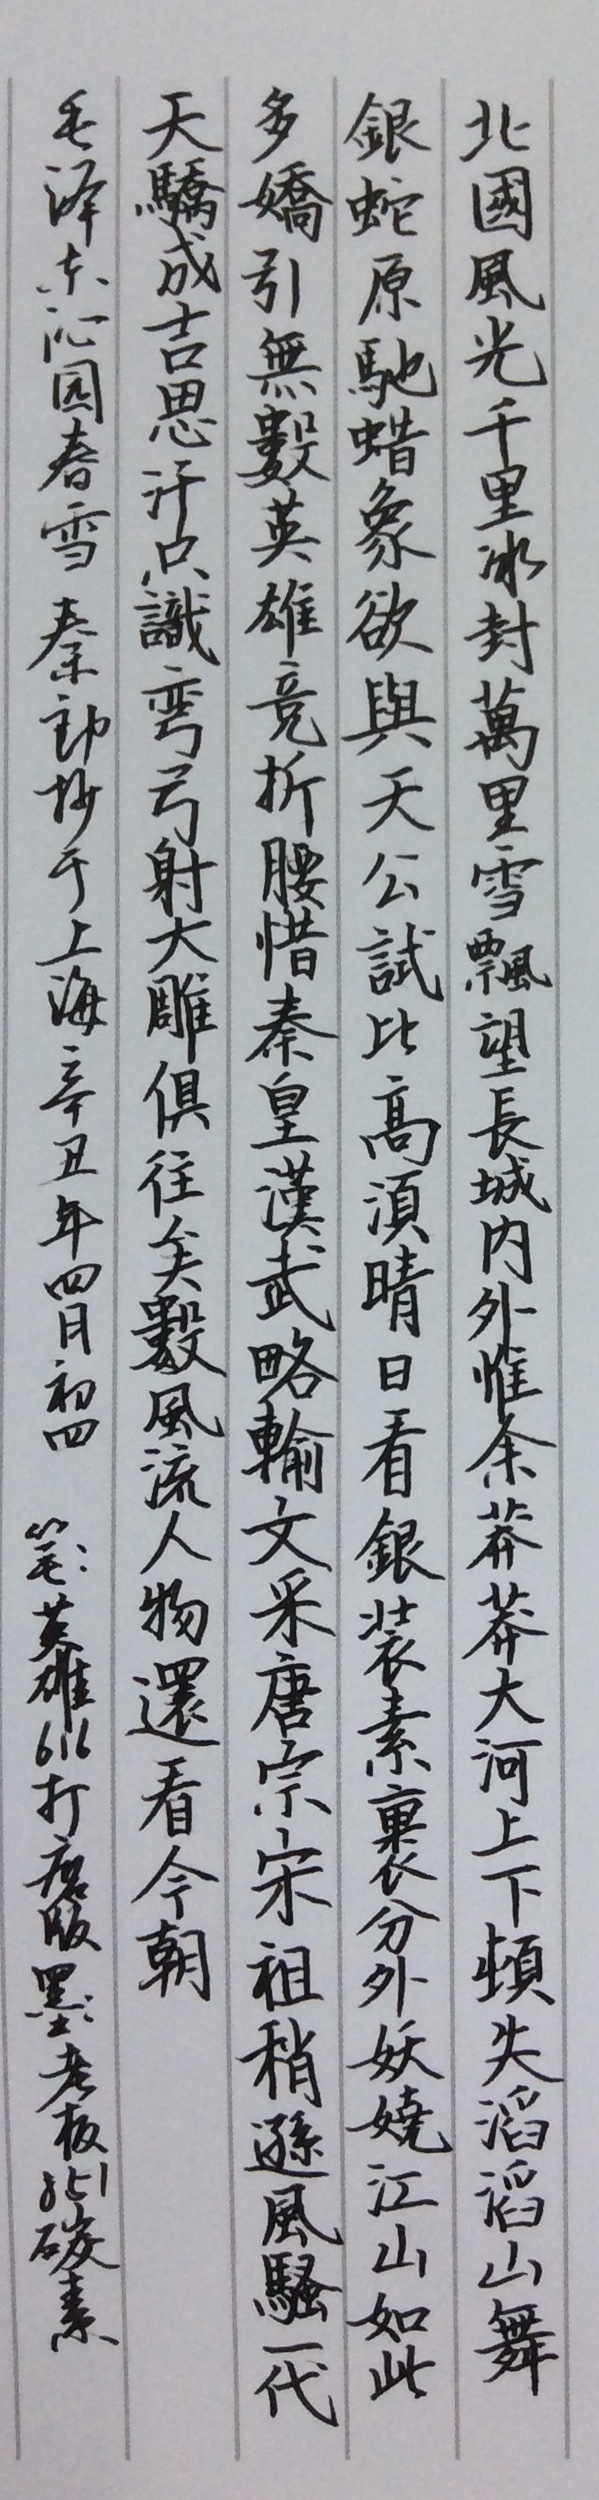 北國風光千里冰封萬里雪飄望長城内外惟余莽莽大河上下頓失滔滔山舞
銀蛇原馳蜡象欲與天公試比高須晴日看銀装素裹分外妖嬈江山如此
多嬌引無數英雄竞折腰惜秦皇漢武略輸文采唐宗宋祖稍遜風騷一代
天驕成吉思汗只識弯弓射大雕俱往矣數風流人物還看今朝
毛泽东沁园春雪 秦郎抄于上海辛丑年四月初四 笔：英雄616打磨版 墨：老板851碳素